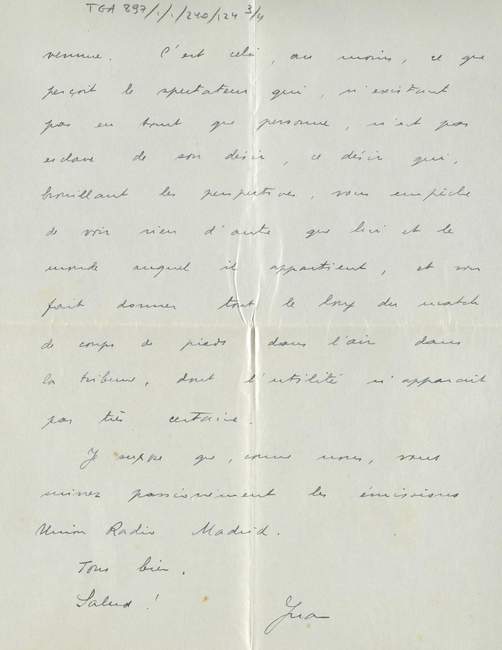 TGA 897/1/1/240/124 3/4
venue. C'est cela, au moins, ce que
perçoit le spectateur qui, n'existant
pas en tant que personne, n'est pas
esclave de son désir, ce désir qui,
brouillant les perspectives, vous empêche
de voir rien d'autre que lui et le
monde auquel il appartient, et vous
fait donner tout le long du match
de coups de pieds dans l'air dans
la tribune, dont l'utilité n'apparait
pas très certaine.
Je suppose que, comme nous, vous
suivez passionnément les émissions
Union Radio Madrid.
Tous bien.
Salud!